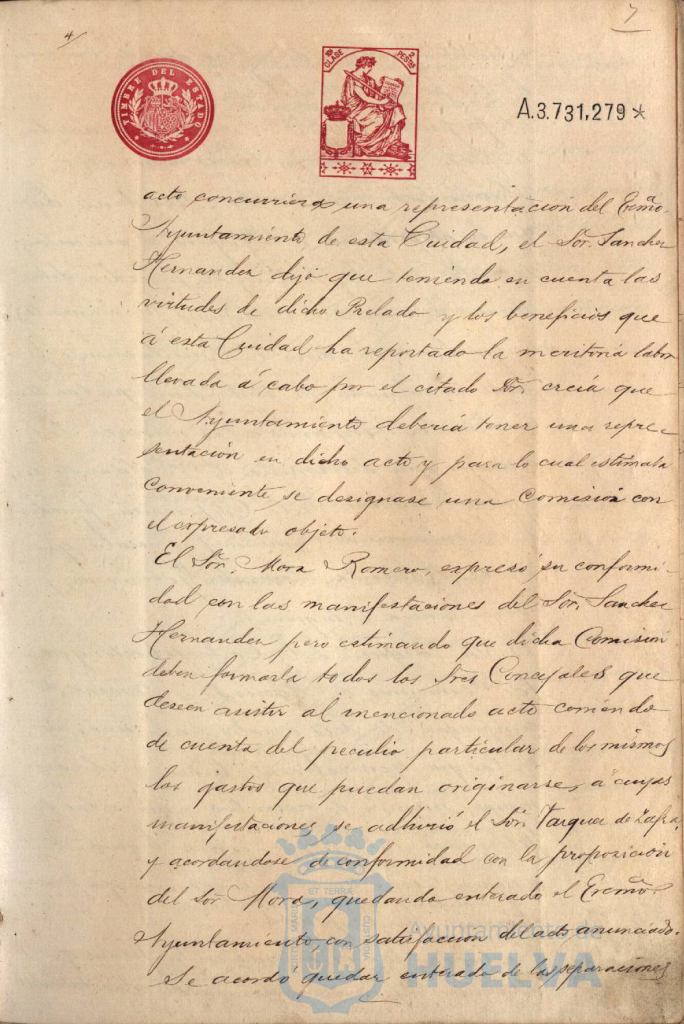 4/
7
TIMBRE DEL ESTADO
10ª CLASE 2 PESETAS
A.3.731,279*
acto concurriera una representación del Excmo.
Ayuntamiento de esta Ciudad, el Sor. Sanchez
Hernandez dijo que teniendo en cuenta las
virtudes de dicho Prelado y los beneficios que
á esta Ciudad ha reportado la meritoria labor
llevada á cabo por el citado Sor. creía que
el Ayuntamiento debería tener una repre-
sentación en dicho acto y para lo cual estimaba
conveniente, se designase una Comisión con
el expresado objeto.
El Sor. Mora Romero, expresó su conformi-
dad con las manifestaciones del Sor. Sanchez
Hernandez pero estimando que dicha Comisión
deben formarla todos los Sres Concejales que
deseen asistir al mencionado acto corriendo
de cuenta del peculio particular de los mismos
los gastos que puedan originarse, á cuyas
manifestaciones, se adhirió el Sor. Vazquez de Zafra,
y acordandose de conformidad con la proposición
del Sor Mora, quedando enterado el Excmo.
Ayuntamiento, con satisfacción del acto anunciado.
Se acordó quedar enterado de las reparaciones
ET TERRAE
Ayuntamiento de
HUELVA